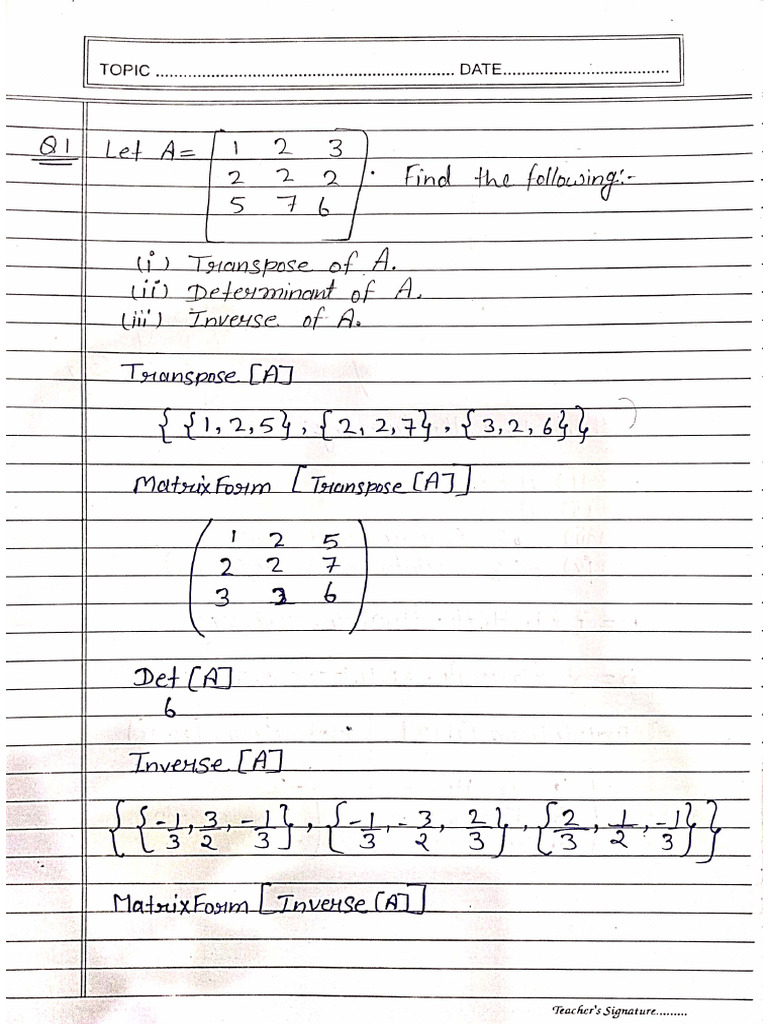 TOPIC ........................................ DATE........................
Q1 Let A= [ 1 2 3
2 2 2 . Find the following:-
5 7 6 ]
(i) Transpose of A.
(ii) Determinant of A.
(iii) Inverse of A.
Transpose [A]
{ {1, 2, 5}, {2, 2, 7}, {3, 2, 6}}
MatrixForm [Transpose [A]]
( 1 2 5
2 2 7
3 2 6 )
Det [A]
6
Inverse [A]
{ {-1/3, 3/2, -1/3}, {-1/3, -3/2, 2/3}, {2/3, 1/2, -1/3} }
MatrixForm [Inverse [A]]
Teacher's Signature.........